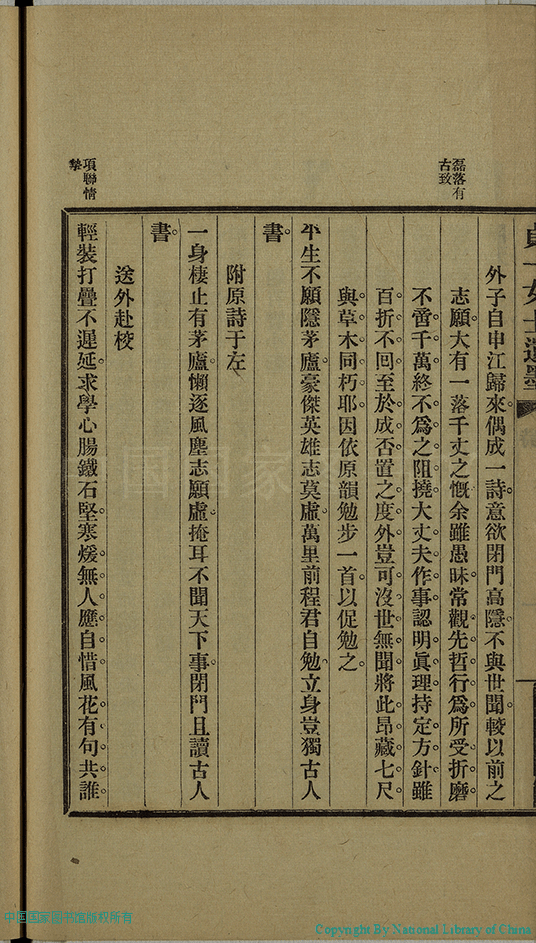 貞一女士遺墨
外子自申江歸來偶成一詩意欲閉門高隱不與世聞較以前之
志願大有一落千丈之慨余雖愚昧常觀先哲行爲所受折磨
不啻千萬終不爲之阻撓大丈夫作事認明眞理持定方針雖
百折不回至於成否置之度外豈可沒世無聞將此昂藏七尺
與草木同朽耶因依原韻勉步一首以促勉之
磊落有
古致
平生不願隱茅廬豪傑英雄志莫虛萬里前程君自勉立身豈獨古人
書
附原詩于左
一身棲止有茅廬懶逐風塵志願虛掩耳不聞天下事閉門且讀古人
書
送外赴校
輕裝打疊不遲延求學心腸鐵石堅寒煖無人應自惜風花有句共誰
項聯情
摯
中国国家图书馆版权所有
Copyright By National Library of China